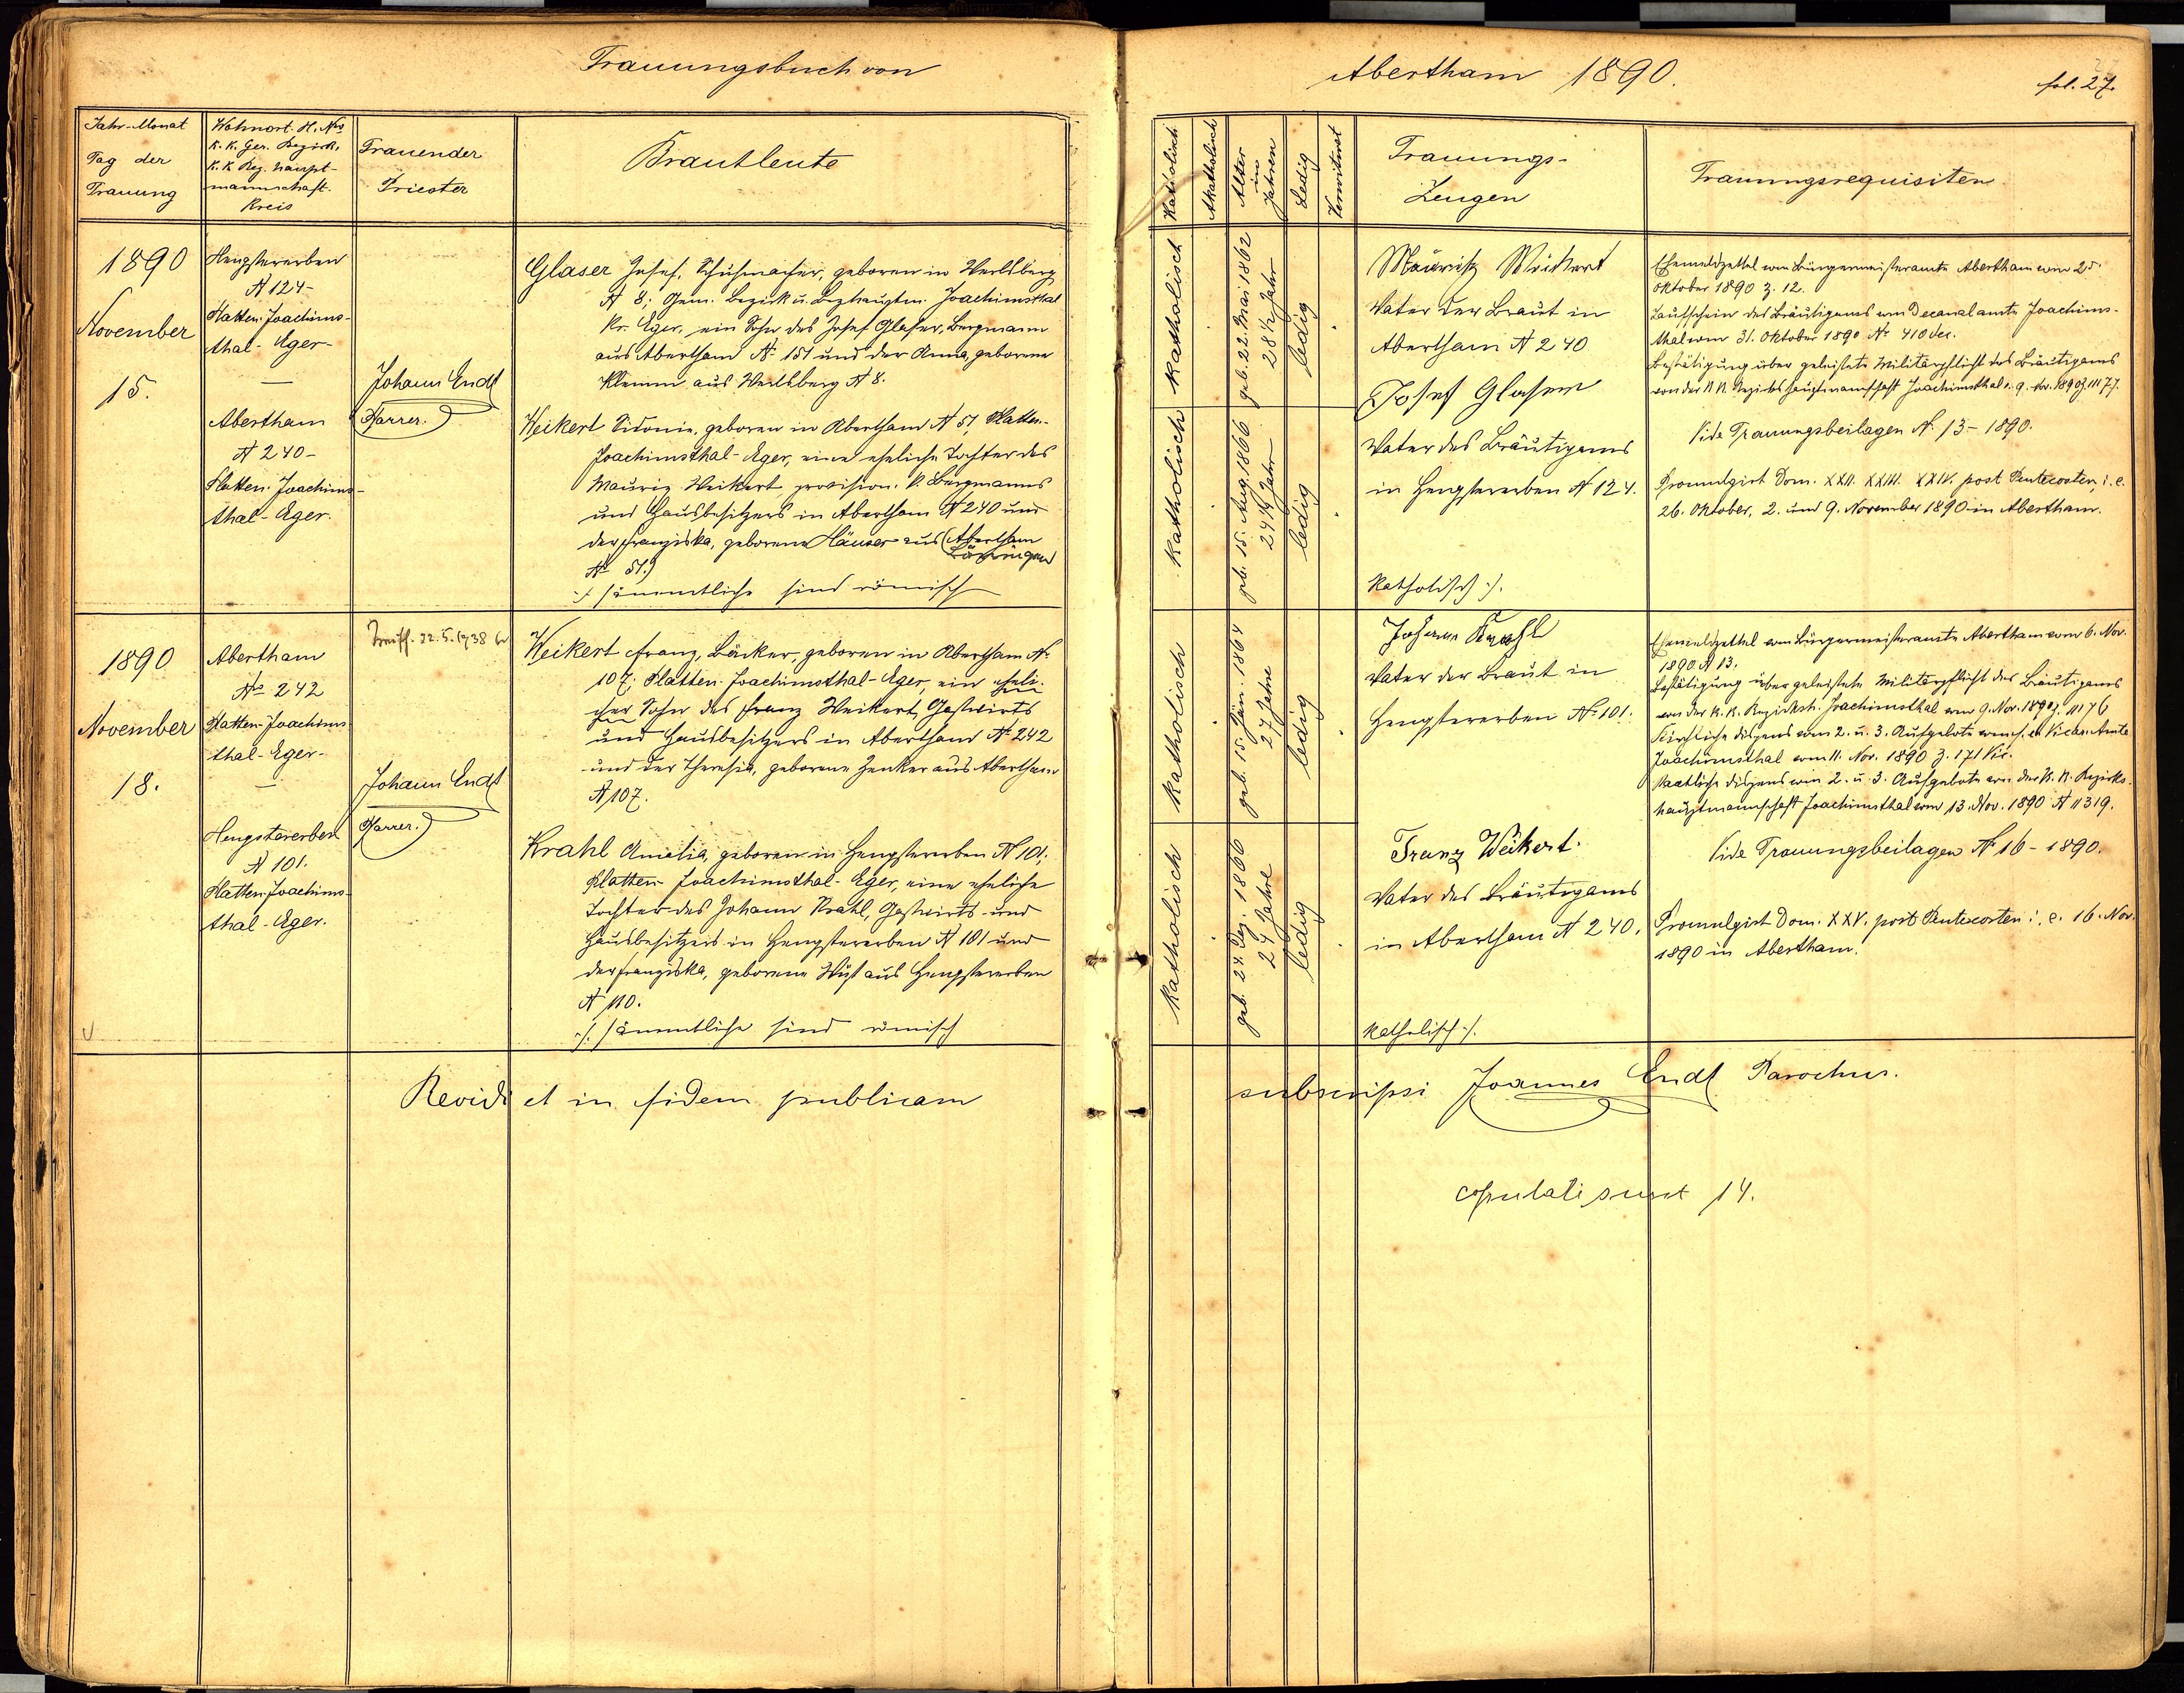 Trauungsbuch von
Abertham 1890.
fol. 27.
Jahr-Monat
Tag der
Trauung
Wohnort. H. Nro
K. K. Ger. Bezirk,
K. K. Bez. haupt-
mannschaft.
Kreis
Trauender
Priester
Brautleute
Katholisch
Akatholisch
Alter
in
Jahren
Ledig
Verwitwet
Trauungs-
Zeugen
Trauungsrequisiten
1890
November
15.
Hengstererben
N 124-
Platten-Joachims-
thal-Eger-
Abertham
N 240-
Platten-Joachims-
thal-Eger.
Johann Endt
Pfarrer.
Glaser Josef, Schuhmacher, geboren in Werlsberg
N 8; Gem. Bezirk u. Bezhauptm. Joachimsthal
Kr. Eger, ein Sohn des Josef Glaser, Bergmann
aus Abertham N. 151 und der Anna, geborene
Klemm aus Werlsberg N 8.
Weikert Sidonie, geboren in Abertham N 51, Platten-
Joachimsthal-Eger, eine eheliche Tochter des
Mauriz Weikert, provision. k. Bergmanns
und Hausbesitzers in Abertham N 240 und
der Franziska, geborene Häuser aus (Abertham
Bäringen
N 51.)
./. sämmtliche sind römisch
katholisch
geb. 22. Mai 1862
28 1/2 Jahr
ledig
katholisch
geb. 15. Aug. 1866
24 1/4 Jahr
ledig
Mauritz Weikert
Vater der Braut in
Abertham N 240
Josef Glaser
Vater des Bräutigams
in Hengstererben N 124.
katholisch ./.
Ehemeldzettel vom Bürgermeisteramte Abertham vom 25.
Oktober 1890 Z. 12.
Taufschein des Bräutigams vom Decanalamte Joachims-
thal vom 31. Oktober 1890 N. 410 dec.
Bestätigung über geleistete Militärpflicht des Bräutigams
von der k. k. Bezirkshauptmannschaft Joachimsthal v. 9. Nov. 1890 Z 11177.
Vide Trauungsbeilagen N. 13 - 1890.
Promulgirt Dom. XXII. XXIII. XXIV. post Pentecosten, i. e.
26. Oktober, 2. und 9. November 1890 in Abertham.
1890
November
18.
Abertham
No 242
Platten-Joachims-
thal-Eger-
Hengstererben
N 101.
Platten-Joachims-
thal-Eger.
22. 5. 1938
Johann Endt
Pfarrer.
Weikert Franz, Bäcker, geboren in Abertham N.
107; Platten-Joachimsthal-Eger, ein eheli-
cher Sohn des Franz Weikert, Gastwirts
und Hausbesitzers in Abertham N. 242
und der Theresia, geborene Zenker aus Abertham
N 107.
Krahl Amalia, geboren in Hengstererben N 101;
Platten-Joachimsthal-Eger, eine eheliche
Tochter des Johann Krahl, Gastwirts und
Hausbesitzers in Hengstererben N 101 und
der Franziska, geborene Wüst aus Hengstererben
N 110.
./. sämmtliche sind römisch
katholisch
geb. 15. Jän. 1864
27 Jahre
ledig
katholisch
geb. 24. Dez. 1866
24 Jahre
ledig
Johann Krahl
Vater der Braut in
Hengstererben N. 101.
Franz Weikert.
Vater des Bräutigams
in Abertham N 240.
katholisch ./.
Ehemeldzettel vom Bürgermeisteramte Abertham vom 6. Nov.
1890 N 13.
Bestätigung über geleistete Militärpflicht des Bräutigams
von der k. k. Bezirksh. Joachimsthal vom 9. Nov. 1890 Z 11176
Kirchliche Dispens vom 2. u. 3. Aufgebote vom Vicar. Amte
Joachimsthal vom 11. Nov. 1890 Z. 171 Vic.
Staatliche Dispens vom 2. u. 3. Aufgebote von der k. k. Bezirks-
hauptmannschaft Joachimsthal vom 13. Nov. 1890 N 11319.
Vide Trauungsbeilagen N 16 - 1890.
Promulgirt Dom. XXV. post Pentecosten i. e. 16. Nov.
1890 in Abertham.
Revidi et in fidem publicam
subscripsi Joannes Endt Parochus.
copulati sunt 14.